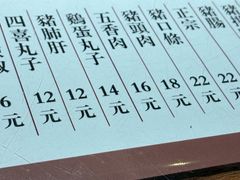 豬腸 22元
正宗 22元
豬口條 18元
豬頭肉 16元
五香肉 14元
鷄蛋丸子 12元
豬肺肝 12元
四喜丸子 6元